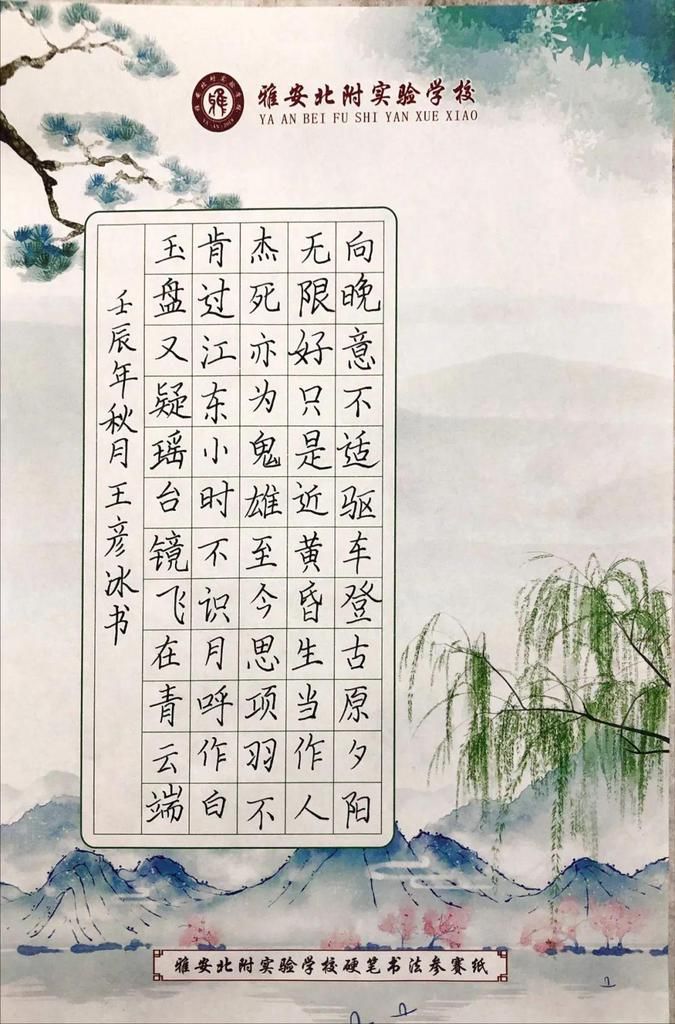 雅安北附实验学校
YA AN BEI FU SHI YAN XUE XIAO
向晚意不适驱车登古原夕阳
无限好只是近黄昏生当作人
杰死亦为鬼雄至今思项羽不
肯过江东小时不识月呼作白
玉盘又疑瑶台镜飞在青云端
壬辰年秋月王彦冰书
雅安北附实验学校硬笔书法参赛纸